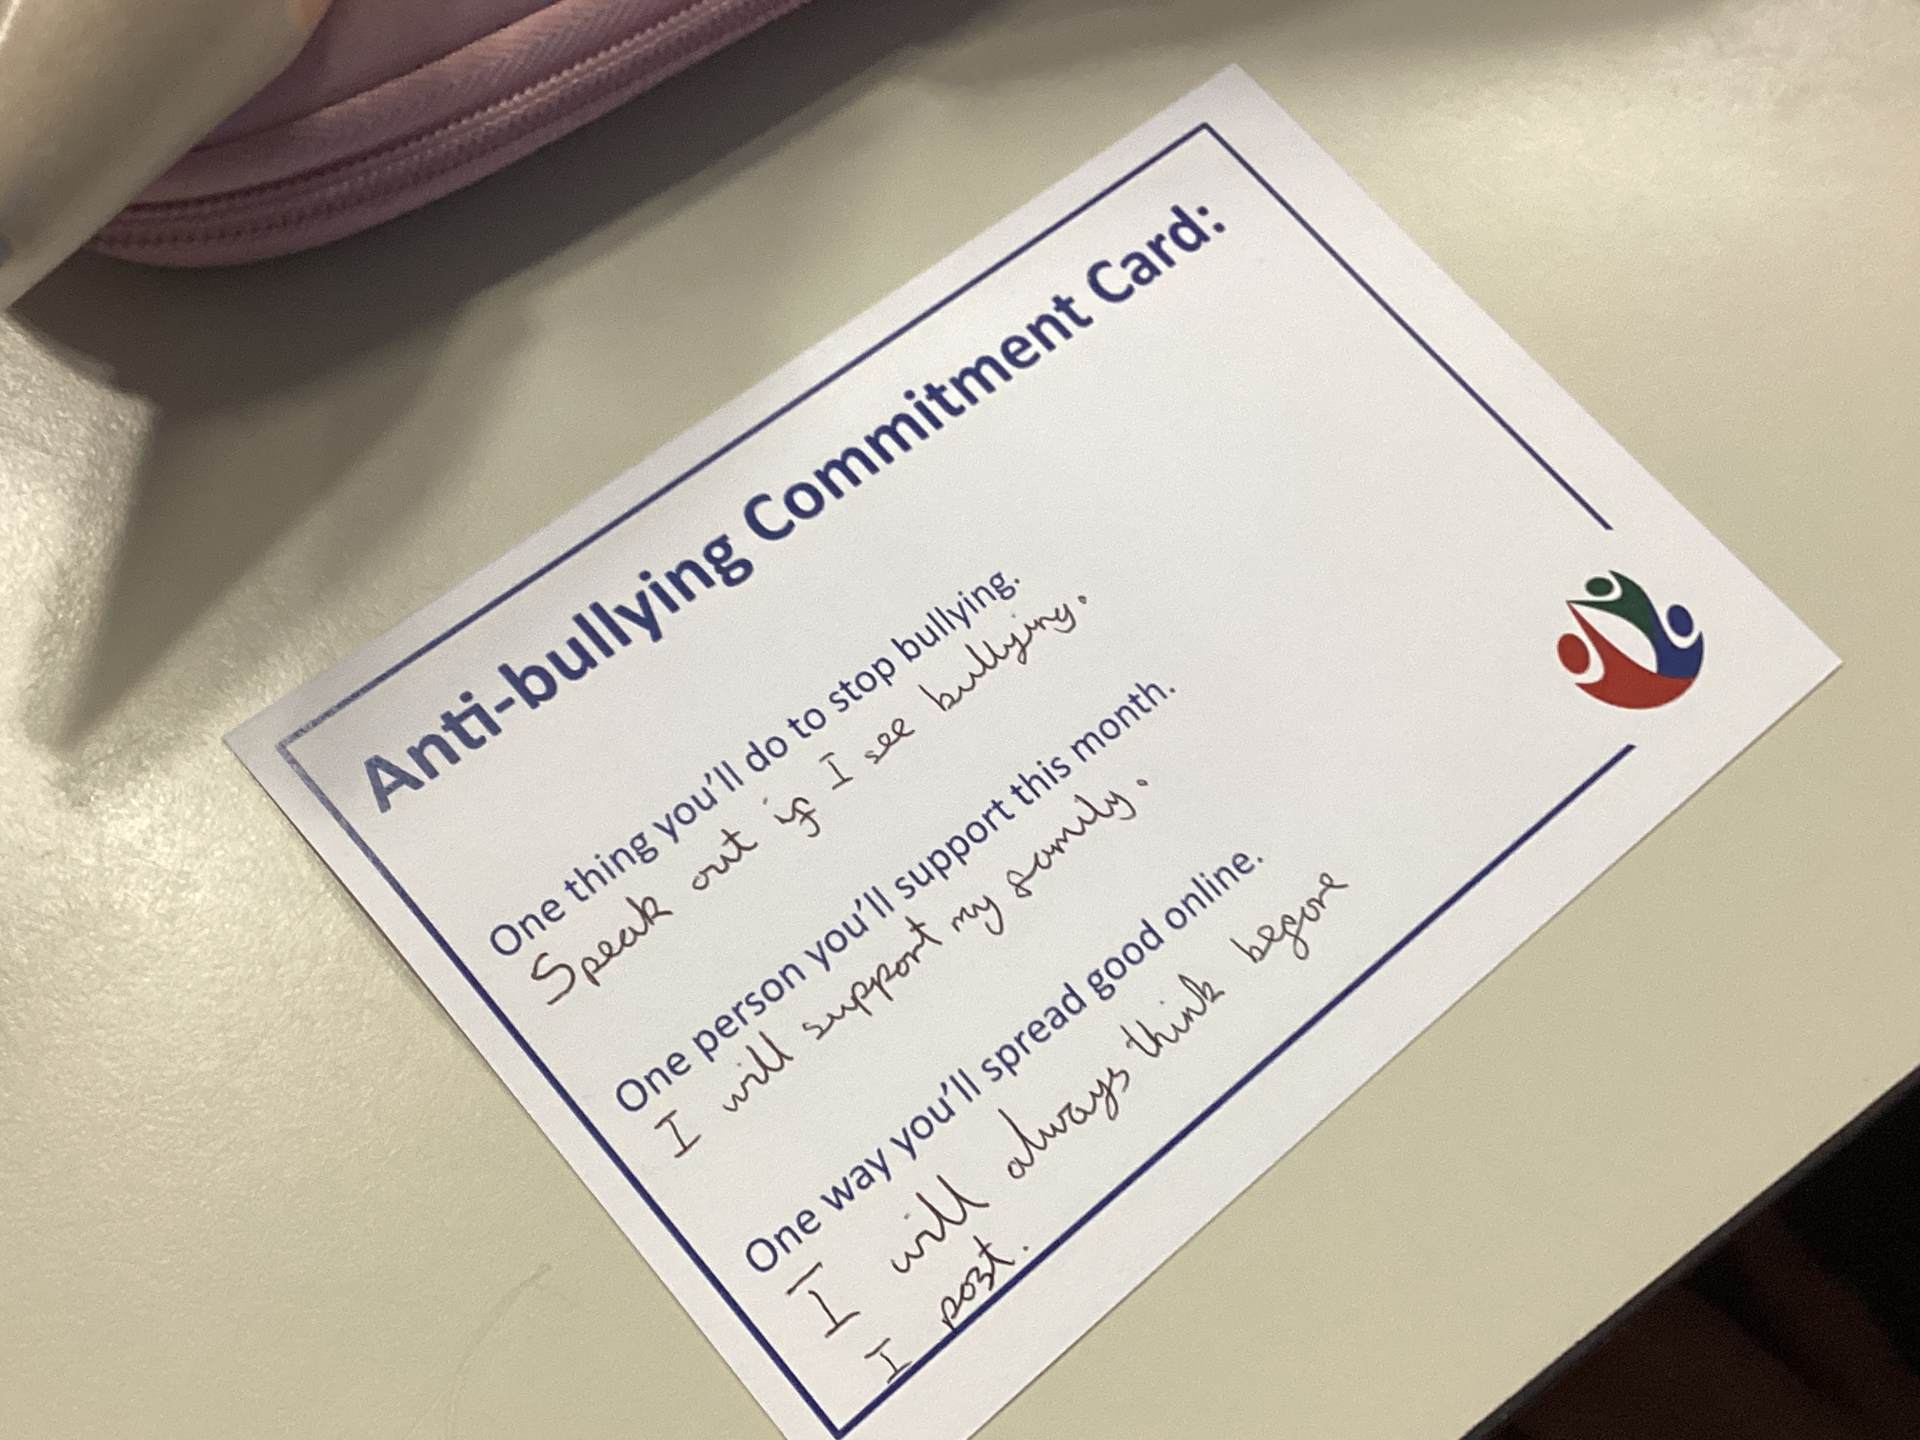 Anti-bullying Commitment Card:
One thing you'll do to stop bullying.
Speak out if I see bullying.
One person you'll support this month.
I will support my family.
One way you'll spread good online.
I will always think before
I post.